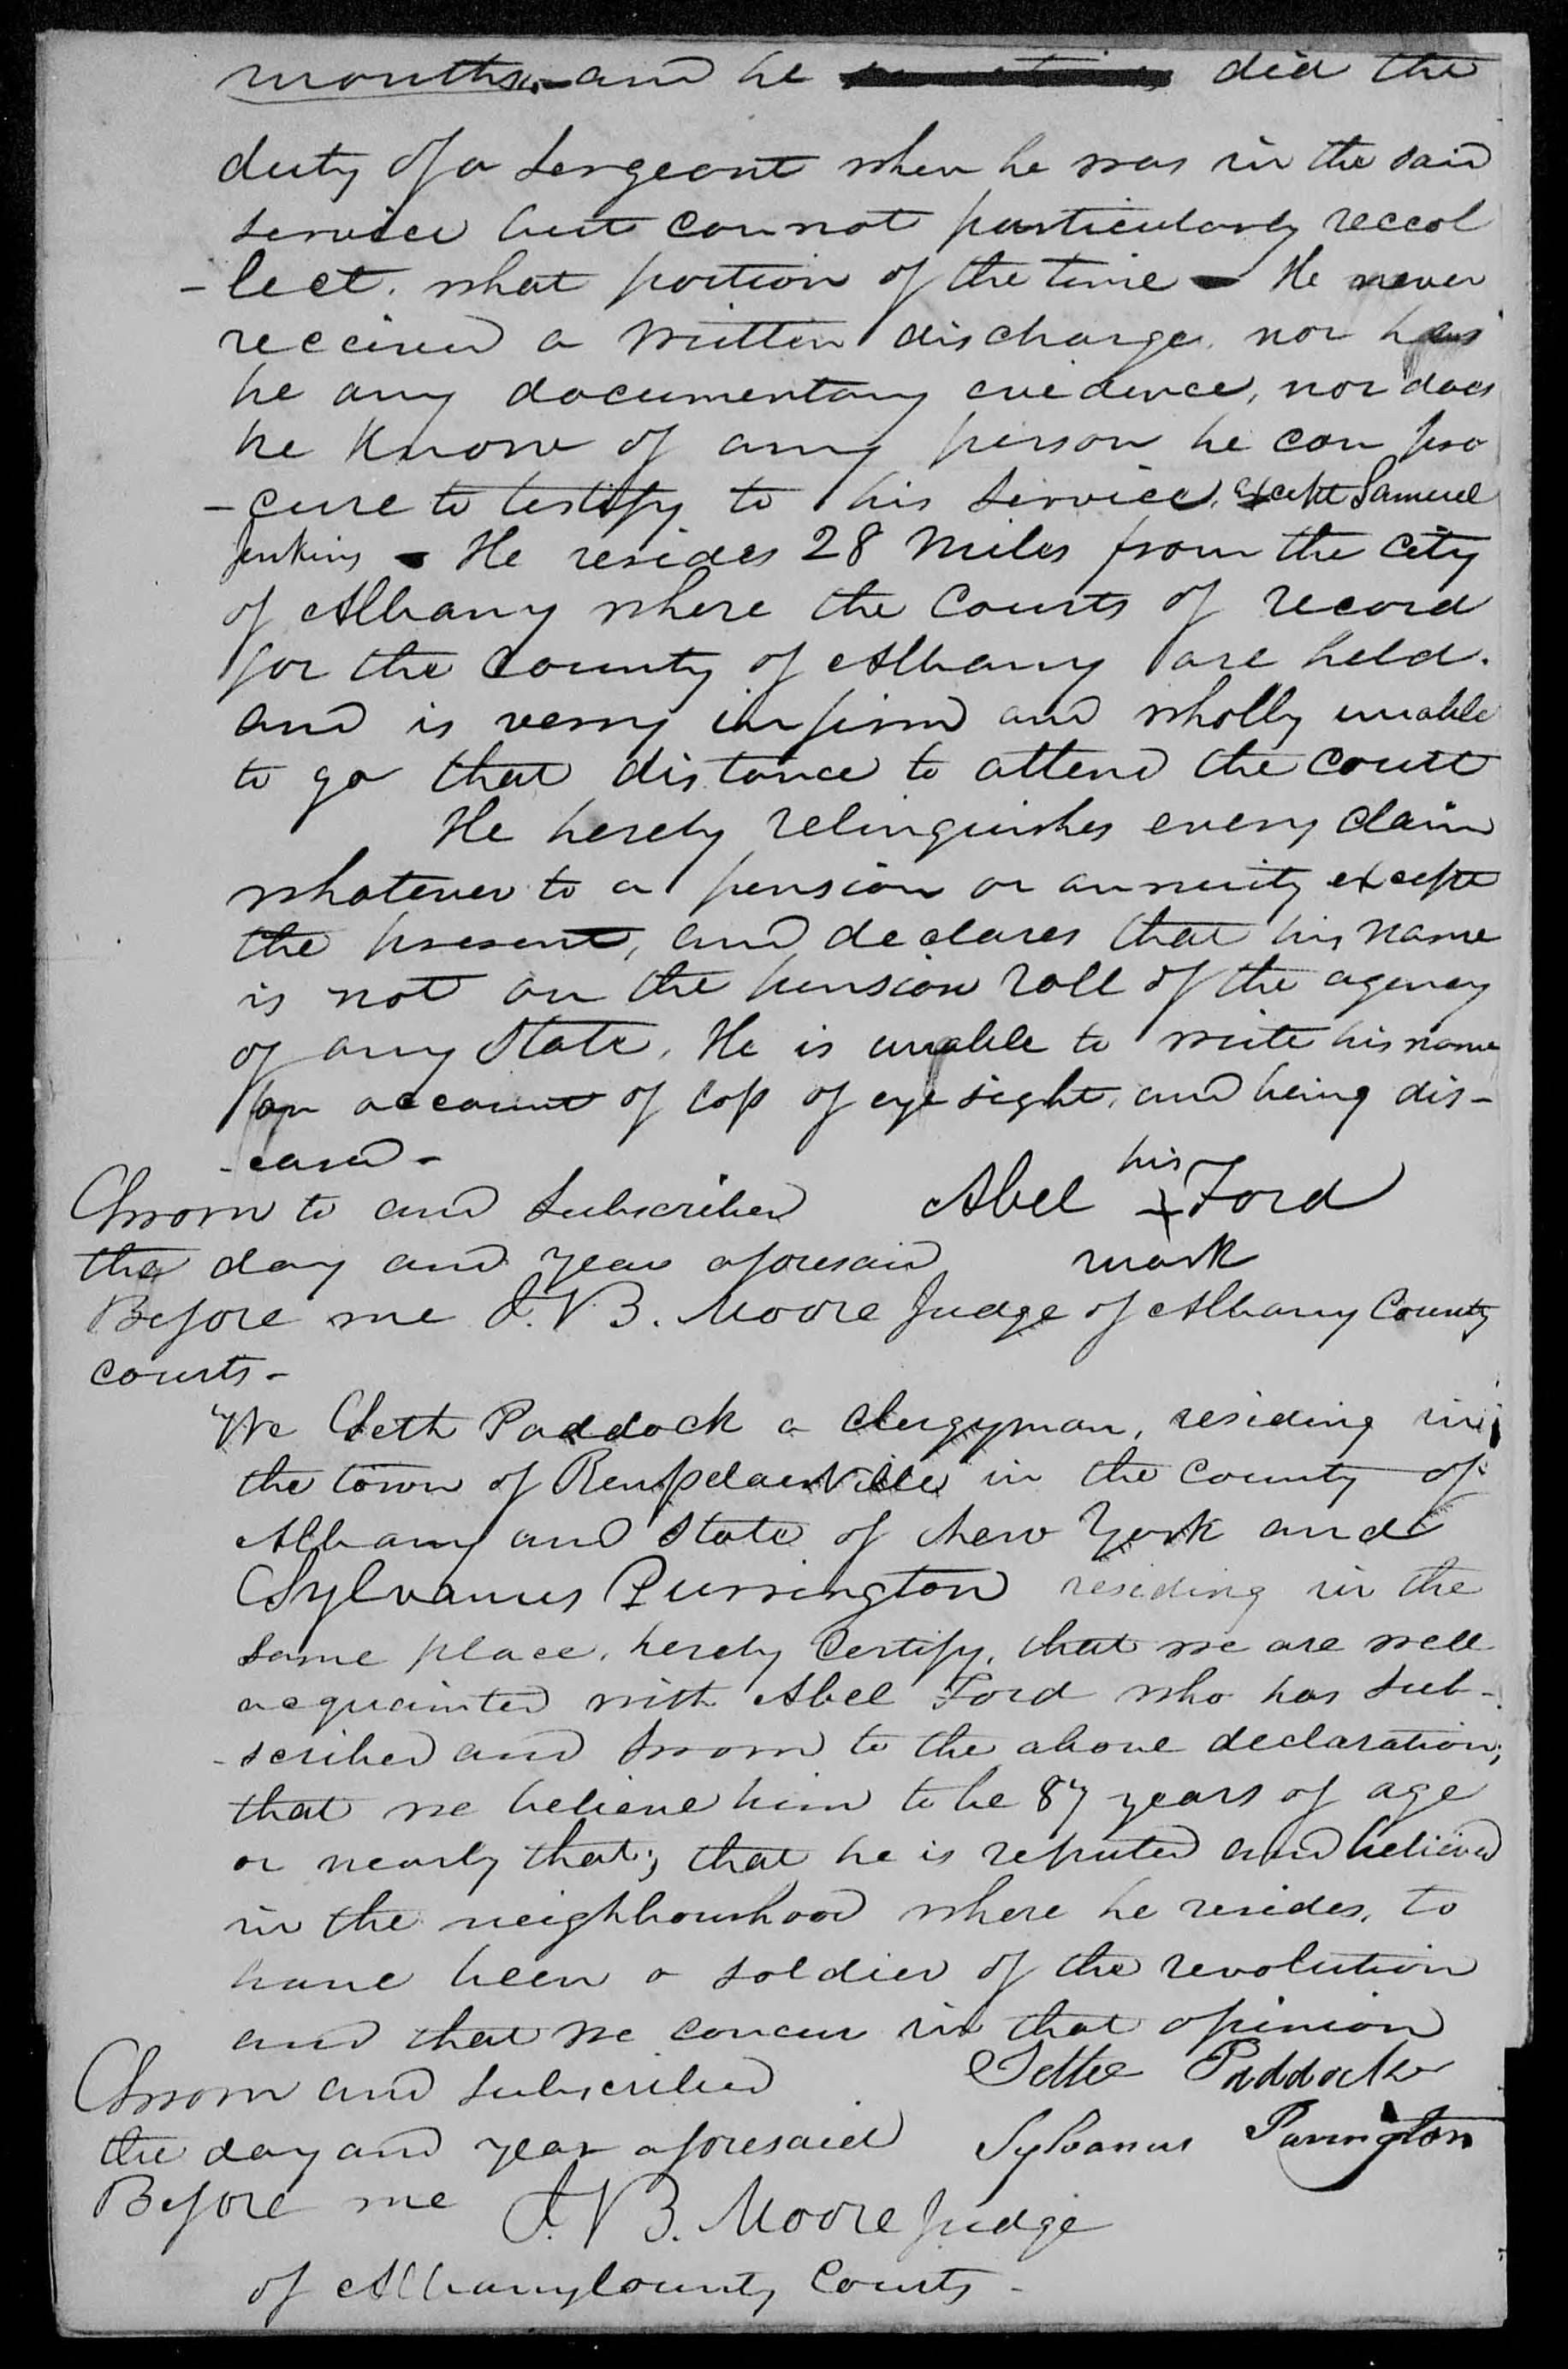 months, and he did the
duty of a Sergeant when he was in the said
service but cannot particularly reccol
-lect. what portion of the time - He never
received a written discharge, nor has
he any documentary evidence, nor does
he know of any person he can pro
-cure to testify to his service, except Samuel
Jenkins - He resides 28 Miles from the City
of Albany where the Courts of record
for the County of Albany are held.
and is verry infirm and wholly unable
to go that distance to attend the Court
He hereby relinquishes every claim
whatever to a pension or annuity except
the present, and declares that his name
is not on the pension roll of the agency
of any State, He is unable to write his name
on account of loss of eye sight, and being dis-
-eased -
Sworn to and Subscribed Abel his + Ford
the day and year aforesaid mark
Before me J. V B. Moore Judge of Albany County
courts -
We Seth Paddock a Clergyman, residing in
the town of Rensselaerville in the County of
Albany and State of New York and
Sylvanus Purrington residing in the
same place, hereby Certify, that we are well
acquainted with Abel Ford who has sub-
-scribed and sworn to the above declaration;
that we believe him to be 87 years of age
or nearly that; that he is reputed and believed
in the neighbourhood where he resides, to
have been a soldier of the revolution
and that we concur in that opinion
Sworn and subscribed Seth Paddock
the day and year aforesaid Sylvanus Purrington
Before me J. V B. Moore Judge
of Albany County Courts -